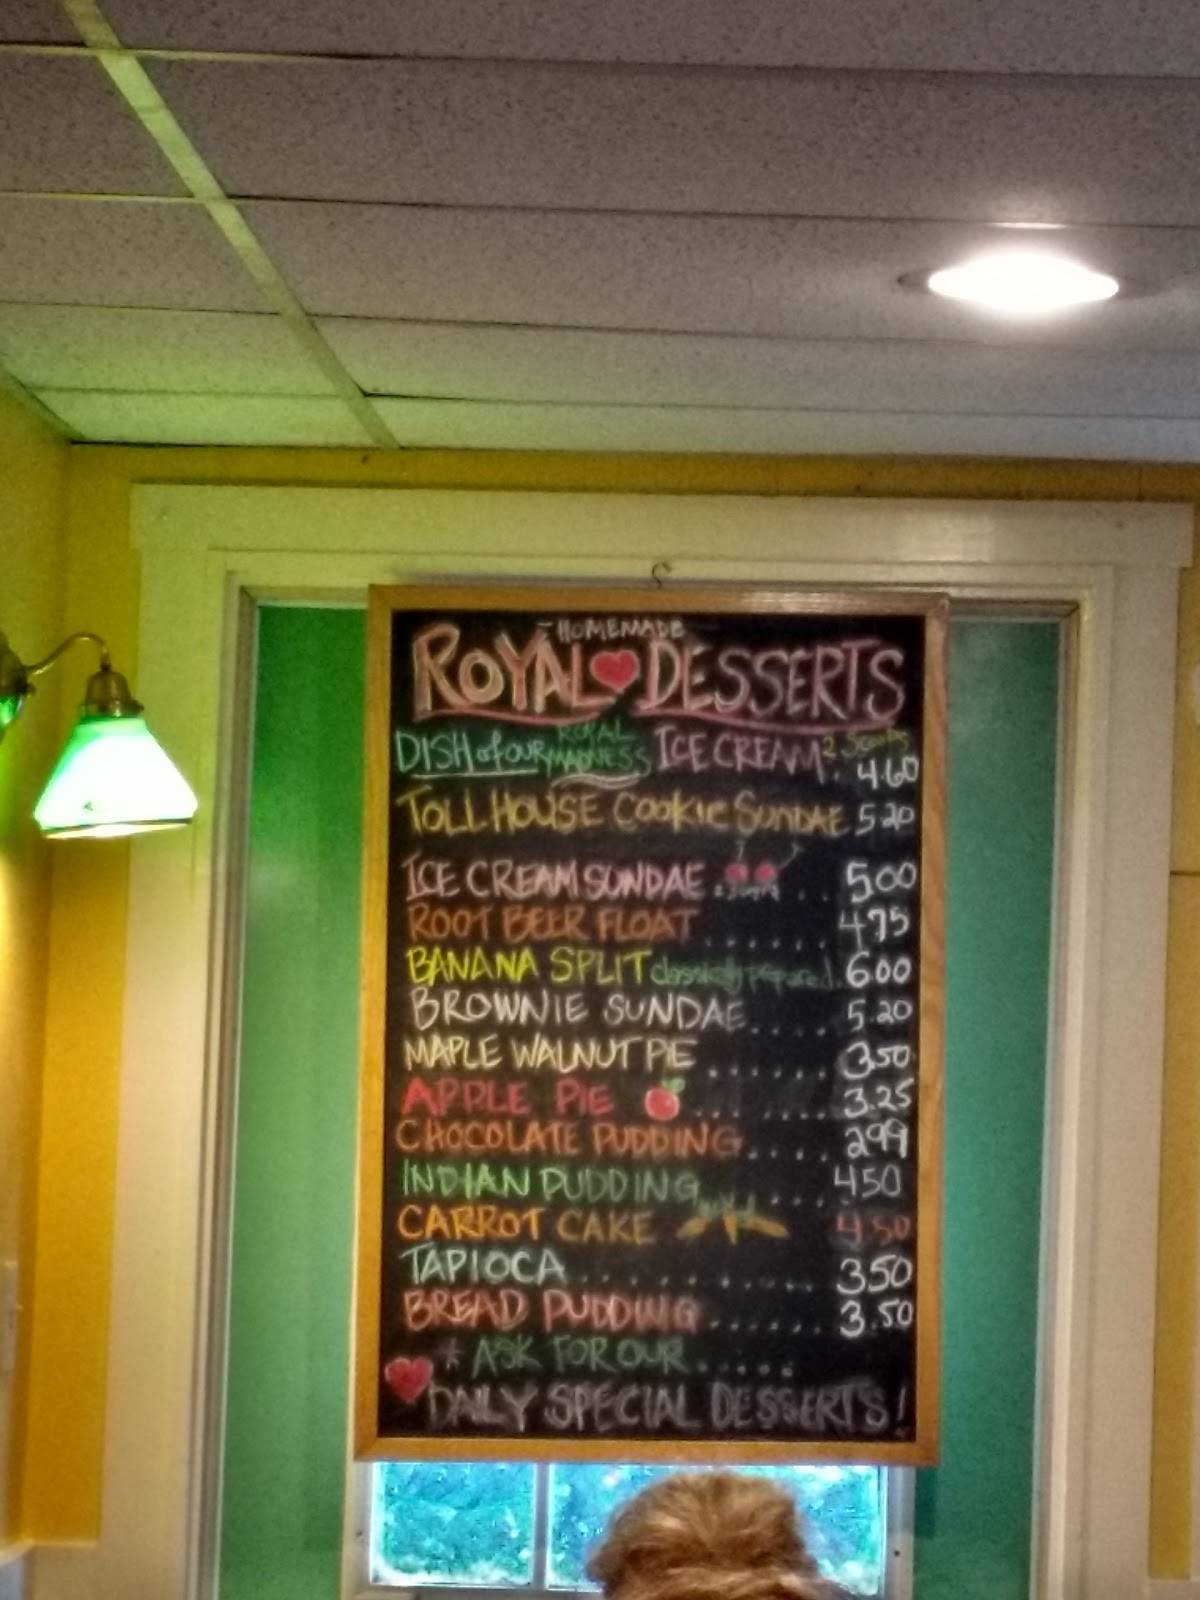 HOMEMADE
ROYAL DESSERTS
DISH of our ROYAL MADNESS ICE CREAM 2 Scoops 4.60
TOLL HOUSE Cookie SUNDAE 5.20
ICE CREAM SUNDAE .. 5.00
ROOT BEER FLOAT ...... 4.75
BANANA SPLIT classically prepared. 6.00
BROWNIE SUNDAE.... 5.20
MAPLE WALNUT PIE ...... 3.50
APPLE PIE ... ..... 3.25
CHOCOLATE PUDDING.... 2.99
INDIAN PUDDING .... 450
CARROT CAKE 4.50
TAPIOCA........... 350
BREAD PUDDING ...... 3.50
* ASK FOR OUR.....
DAILY SPECIAL DESSERTS!